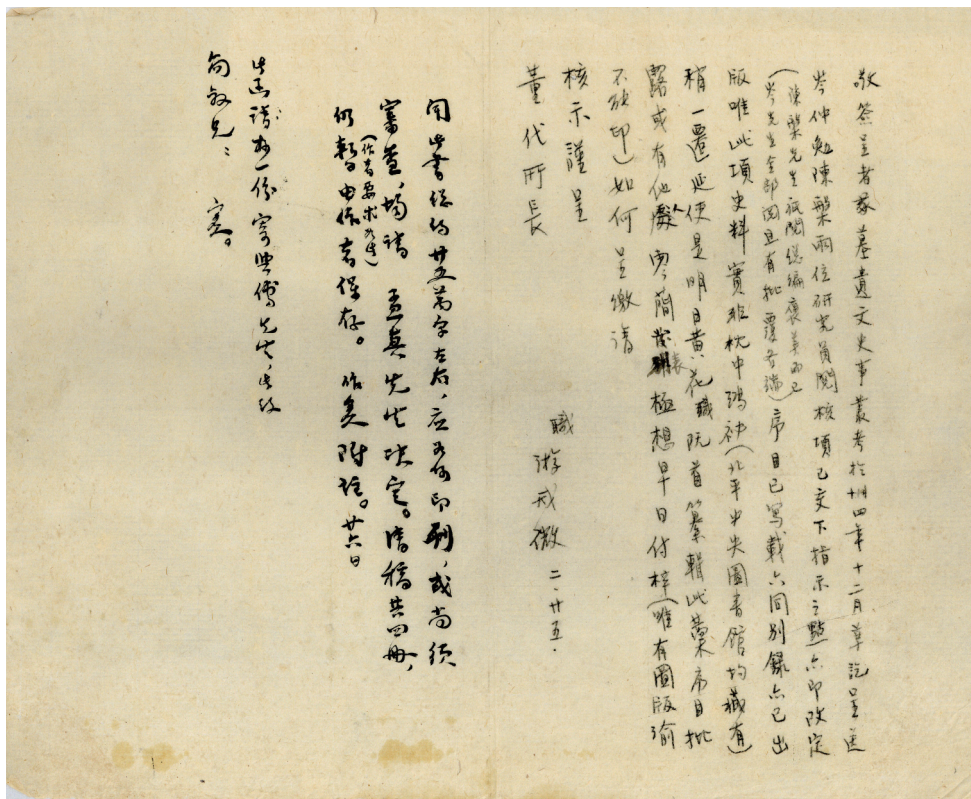 敬簽呈者冢墓遺文史事叢考於卅四年十二月草訖呈送
岑仲勉陳槃兩位研究員閱核項已交下指示之點亦即改定
(陳槃先生祇閱總編褒美而已
岑先生全部閱且有批覆多端)序目已寫載六同別錄亦已出
版唯此項史料實非枕中鴻祕(北平中央圖書館均藏有)
稍一遷延便是明日黃花職既首纂輯此藁序目批
露或有他人零簡發表極想早日付梓(唯有圖版渝
不能印)如何呈繳請
核示謹呈
董代所長
職游戒微 二、廿五.
聞此書總約廿五萬字左右,应否即印刷,或尚須
審查,均請 孟真先生决定。清稿共四冊,
(作者要求如此)
仍暫由作者保存。 作賓附註。廿六日
此函請抄一份寄與傅先生,此致
尚敘兄: 賓。